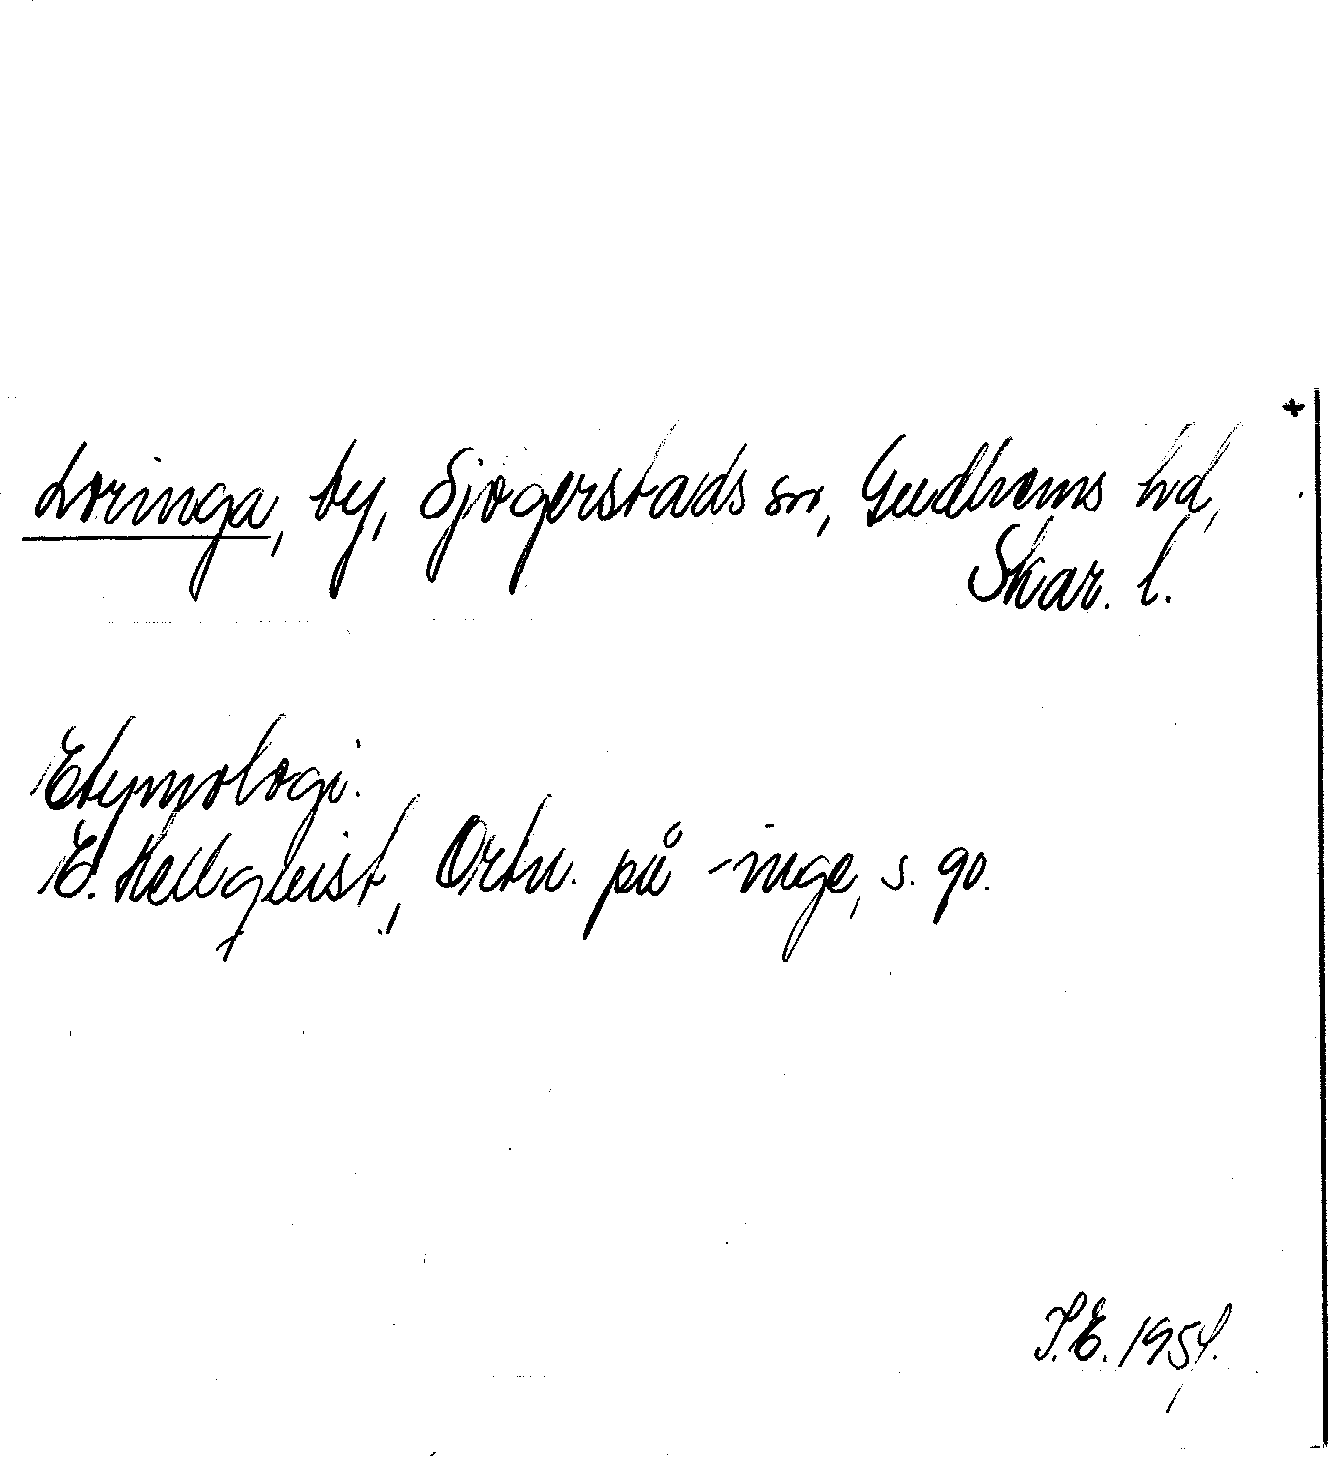 Loringa, by, Sjogerstads sn, Gudhems hd,
Skar. l.
Etymologi.
E. Hellquist, Ortn. på -inge, s. 90.
I.E. 1954.